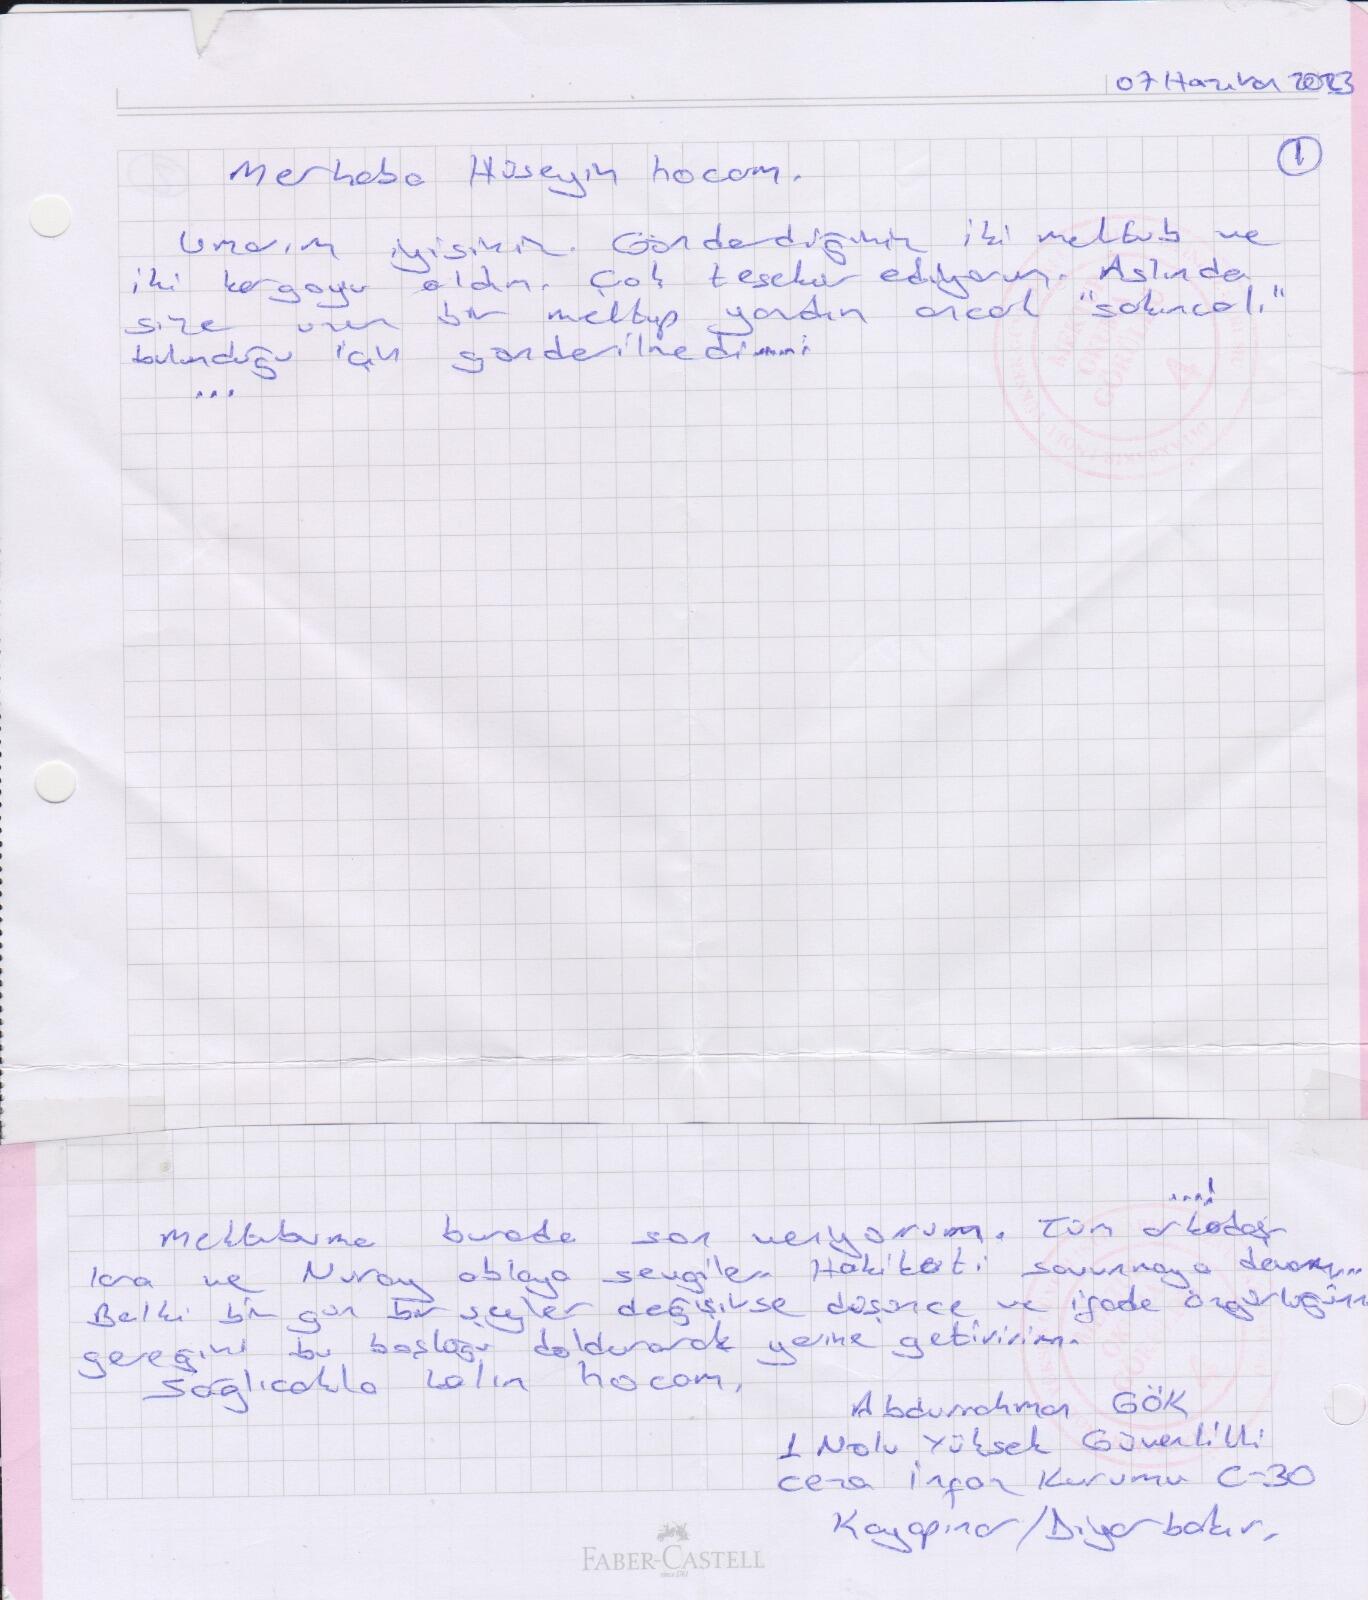 07 Haziran 2023
1
Merhaba Hüseyin hocam.
Umarım iyisiniz. Gönderdiğiniz iki mektub ve
iki kargoyu aldım. Çok teşekür ediyorum. Aslında
size uzun bir mektup yazdım ancak "sakıncalı"
bulunduğu için gönderilmedi....
...
....!
Mektubuma burada son veriyorum. Tüm arkadaş-
lara ve Nuray ablaya sevgiler.. Hakikati savunmaya devam...
Belki bir gün bir şeyler değişirse düşünce ve ifade özgürlüğünün
gereğini bu boşluğu doldurarak yerine getiririm.
Sağlıcakla kalın hocam.
Abdurrahman GÖK
1 Nolu Yüksek Güvenlikli
Ceza İnfaz Kurumu C-30
Kayapınar/Diyarbakır.
FABER-CASTELL
since 1761